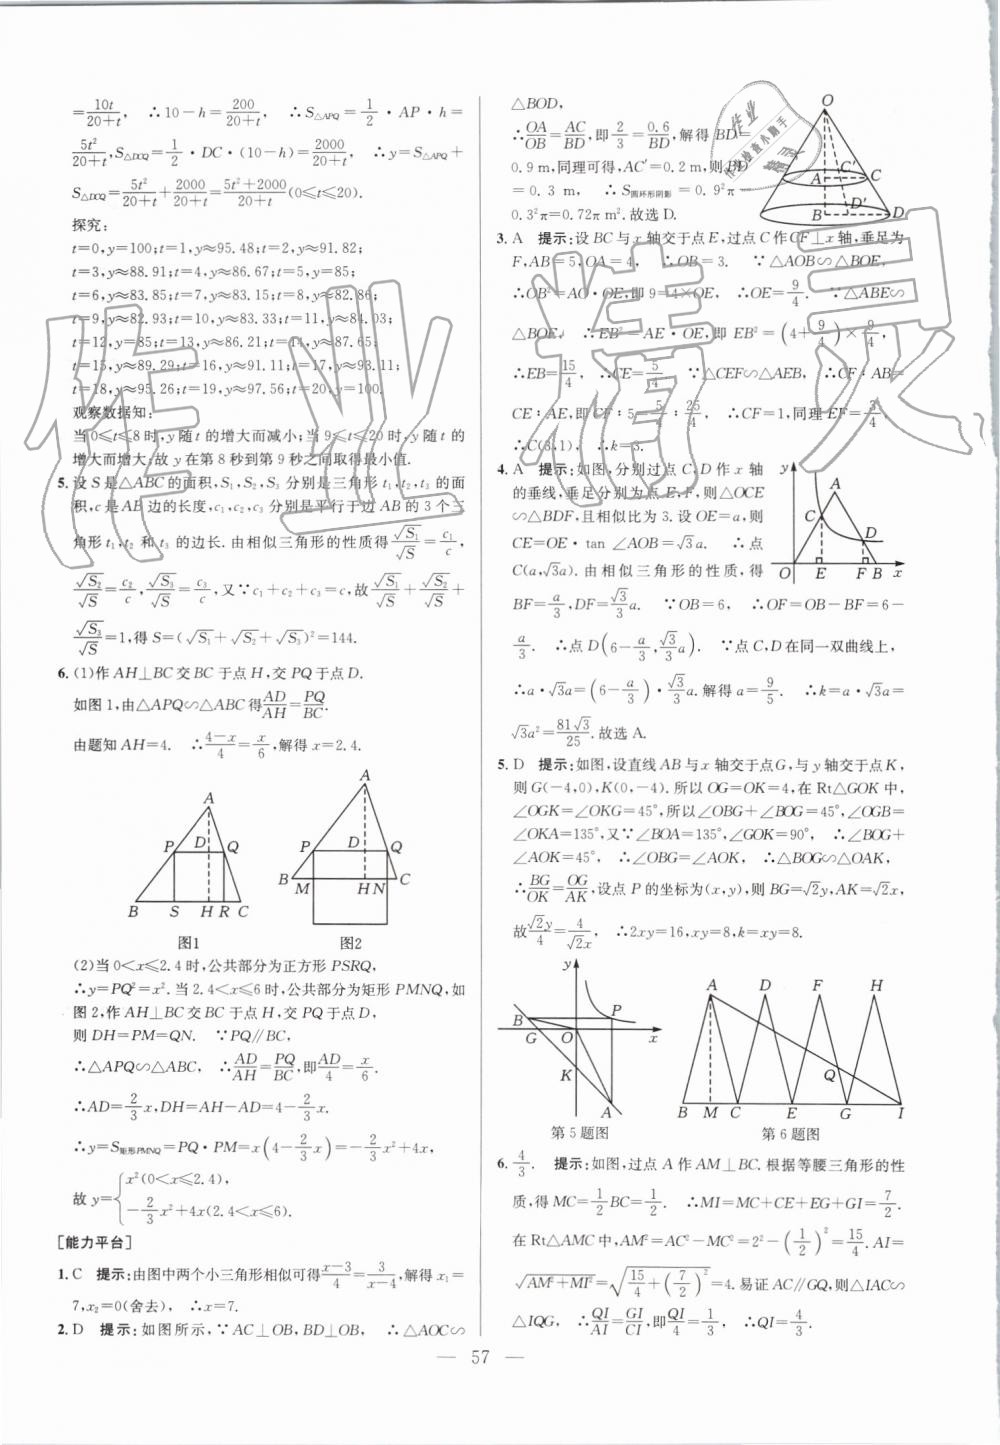 =10t/(20+t), ∴10-h=200/(20+t) ∴S△APQ=1/2·AP·h=
5t²/(20+t),S△DCQ=1/2·DC·(10-h)=2000/(20+t) ∴y=S△APQ+
S△DCQ=5t²/(20+t)+2000/(20+t)=(5t²+2000)/(20+t)(0⩽t⩽20).
探究:
t=0,y=100;t=1,y≈95.48;t=2,y≈91.82;
t=3,y≈88.91;t=4,y≈86.67;t=5,y=85;
t=6,y≈83.85;t=7,y≈83.15;t=8,y≈82.86;
t=9,y≈82.93;t=10,y≈83.33;t=11,y≈84.03;
t=12,y=85;t=13,y≈86.21;t=14,y≈87.65;
t=15,y≈89.29;t=16,y≈91.11;t=17,y≈93.11;
t=18,y≈95.26;t=19,y≈97.56;t=20,y=100.
观察数据知:
当0⩽t⩽8时,y随t的增大而减小;当9⩽t⩽20时,y随t的
增大而增大;故y在第8秒到第9秒之间取得最小值.
5. 设S是△ABC的面积,S₁,S₂,S₃分别是三角形t₁,t₂,t₃的
面积,c是AB边的长度,c₁,c₂,c₃分别是平行于边AB的3个三
角形t₁,t₂和t₃的边长.由相似三角形的性质得√S₁/√S=c₁/c,
√S₂/√S=c₂/c,√S₃/√S=c₃/c,又∵c₁+c₂+c₃=c,故√S₁/√S+√S₂/√S+
√S₃/√S=1,得S=(√S₁+√S₂+√S₃)²=144.
6. (1)作AH⊥BC交BC于点H,交PQ于点D.
如图1,由△APQ∽△ABC得AD/AH=PQ/BC.
由题知AH=4. ∴(4-x)/4=x/6,解得x=2.4.
A
P D Q
B S H R C
图1
A
P D Q
B M H N C
图2
(2)当0<x⩽2.4时,公共部分为正方形PSRQ,
∴y=PQ²=x².当2.4<x⩽6时,公共部分为矩形PMNQ,如
图2,作AH⊥BC交BC于点H,交PQ于点D,
则DH=PM=QN. ∵PQ∥BC,
∴△APQ∽△ABC, ∴AD/AH=PQ/BC,即AD/4=x/6.
∴AD=2/3x,DH=AH-AD=4-2/3x.
∴y=S矩形PMNQ=PQ·PM=x(4-2/3x)=-2/3x²+4x,
故y={x²(0<x⩽2.4),
-2/3x²+4x(2.4<x⩽6).
[能力平台]
1. C 提示:由图中两个小三角形相似可得(x-3)/4=3/(x-4),解得x₁=
7,x₂=0(舍去), ∴x=7.
2. D 提示:如图所示,∵AC⊥OB,BD⊥OB, ∴△AOC∽
△BOD,
∴OA/OB=AC/BD,即2/3=0.6/BD,解得BD=
0.9 m,同理可得,AC′=0.2 m,则BD′
=0.3 m, ∴S圆环形阴影=0.9²π-
0.3²π=0.72π m².故选D.
O
A C′ C
B D′ D
3. A 提示:设BC与x轴交于点E,过点C作CF⊥x轴,垂足为
F,AB=5,OA=4, ∴OB=3. ∵△AOB∽△BOE,
∴OB²=AO·OE,即9=4×OE, ∴OE=9/4. ∵△ABE∽
△BOE, ∴EB²=AE·OE,即EB²=(4+9/4)×9/4,
∴EB=15/4, ∴CE=5/4. ∵△CEF∽△AEB, ∴CF∶AB=
CE∶AE,即CF∶5=5/4∶25/4, ∴CF=1,同理EF=3/4,
∴C(3,1), ∴k=3.
4. A 提示:如图,分别过点C,D作x轴
的垂线,垂足分别为点E,F,则△OCE
∽△BDF,且相似比为3.设OE=a,则
CE=OE·tan ∠AOB=√3a. ∴点
C(a,√3a).由相似三角形的性质,得
BF=a/3,DF=√3/3a. ∵OB=6, ∴OF=OB-BF=6-
a/3. ∴点D(6-a/3,√3/3a). ∵点C,D在同一双曲线上,
∴a·√3a=(6-a/3)·√3/3a.解得a=9/5. ∴k=a·√3a=
√3a²=81√3/25.故选A.
y A
C D
O E F B x
5. D 提示:如图,设直线AB与x轴交于点G,与y轴交于点K,
则G(-4,0),K(0,-4).所以OG=OK=4,在Rt△GOK中,
∠OGK=∠OKG=45°,所以∠OBG+∠BOG=45°,∠OGB=
∠OKA=135°,又∵∠BOA=135°,∠GOK=90°, ∴∠BOG+
∠AOK=45°, ∴∠OBG=∠AOK, ∴△BOG∽△OAK,
∴BG/OK=OG/AK,设点P的坐标为(x,y),则BG=√2y,AK=√2x,
故√2y/4=4/√2x, ∴2xy=16,xy=8,k=xy=8.
y
B P
G O x
K
A
第5题图
A D F H
Q
B M C E G I
第6题图
6. 4/3. 提示:如图,过点A作AM⊥BC.根据等腰三角形的性
质,得MC=1/2BC=1/2. ∴MI=MC+CE+EG+GI=7/2.
在Rt△AMC中,AM²=AC²-MC²=2²-(1/2)²=15/4.AI=
√(AM²+MI²)=√(15/4+(7/2)²)=4.易证AC∥GQ,则△IAC∽
△IQG, ∴QI/AI=GI/CI,即QI/4=1/3, ∴QI=4/3.
— 57 —
作业精灵